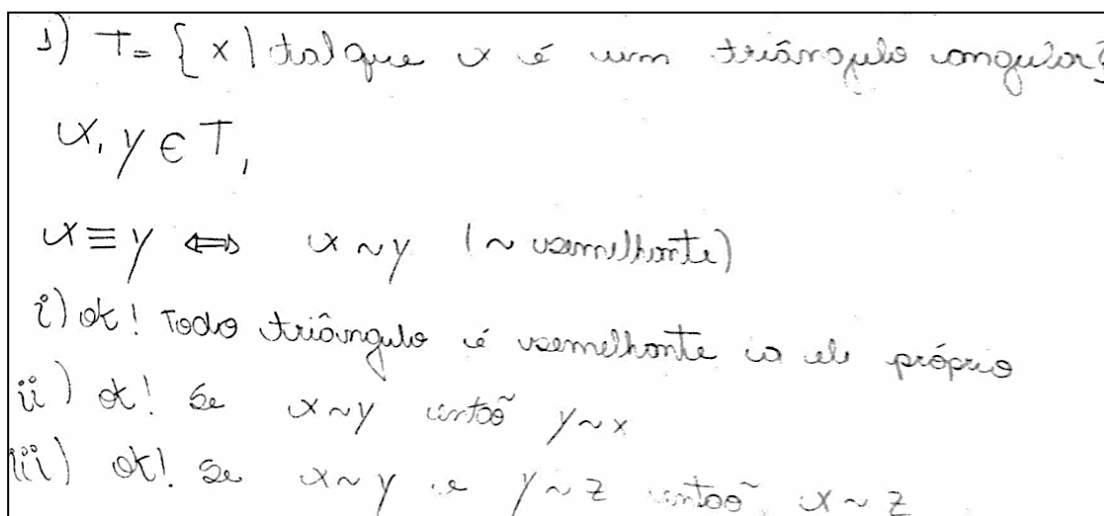 1) T = { x | tal que x é um triângulo angular}
x, y ∈ T,
x ≡ y ⇔ x ~ y (~ semelhante)
i) ok! Todo triângulo é semelhante a ele próprio
ii) ok! Se x ~ y então y ~ x
iii) ok! Se x ~ y e y ~ z então x ~ z